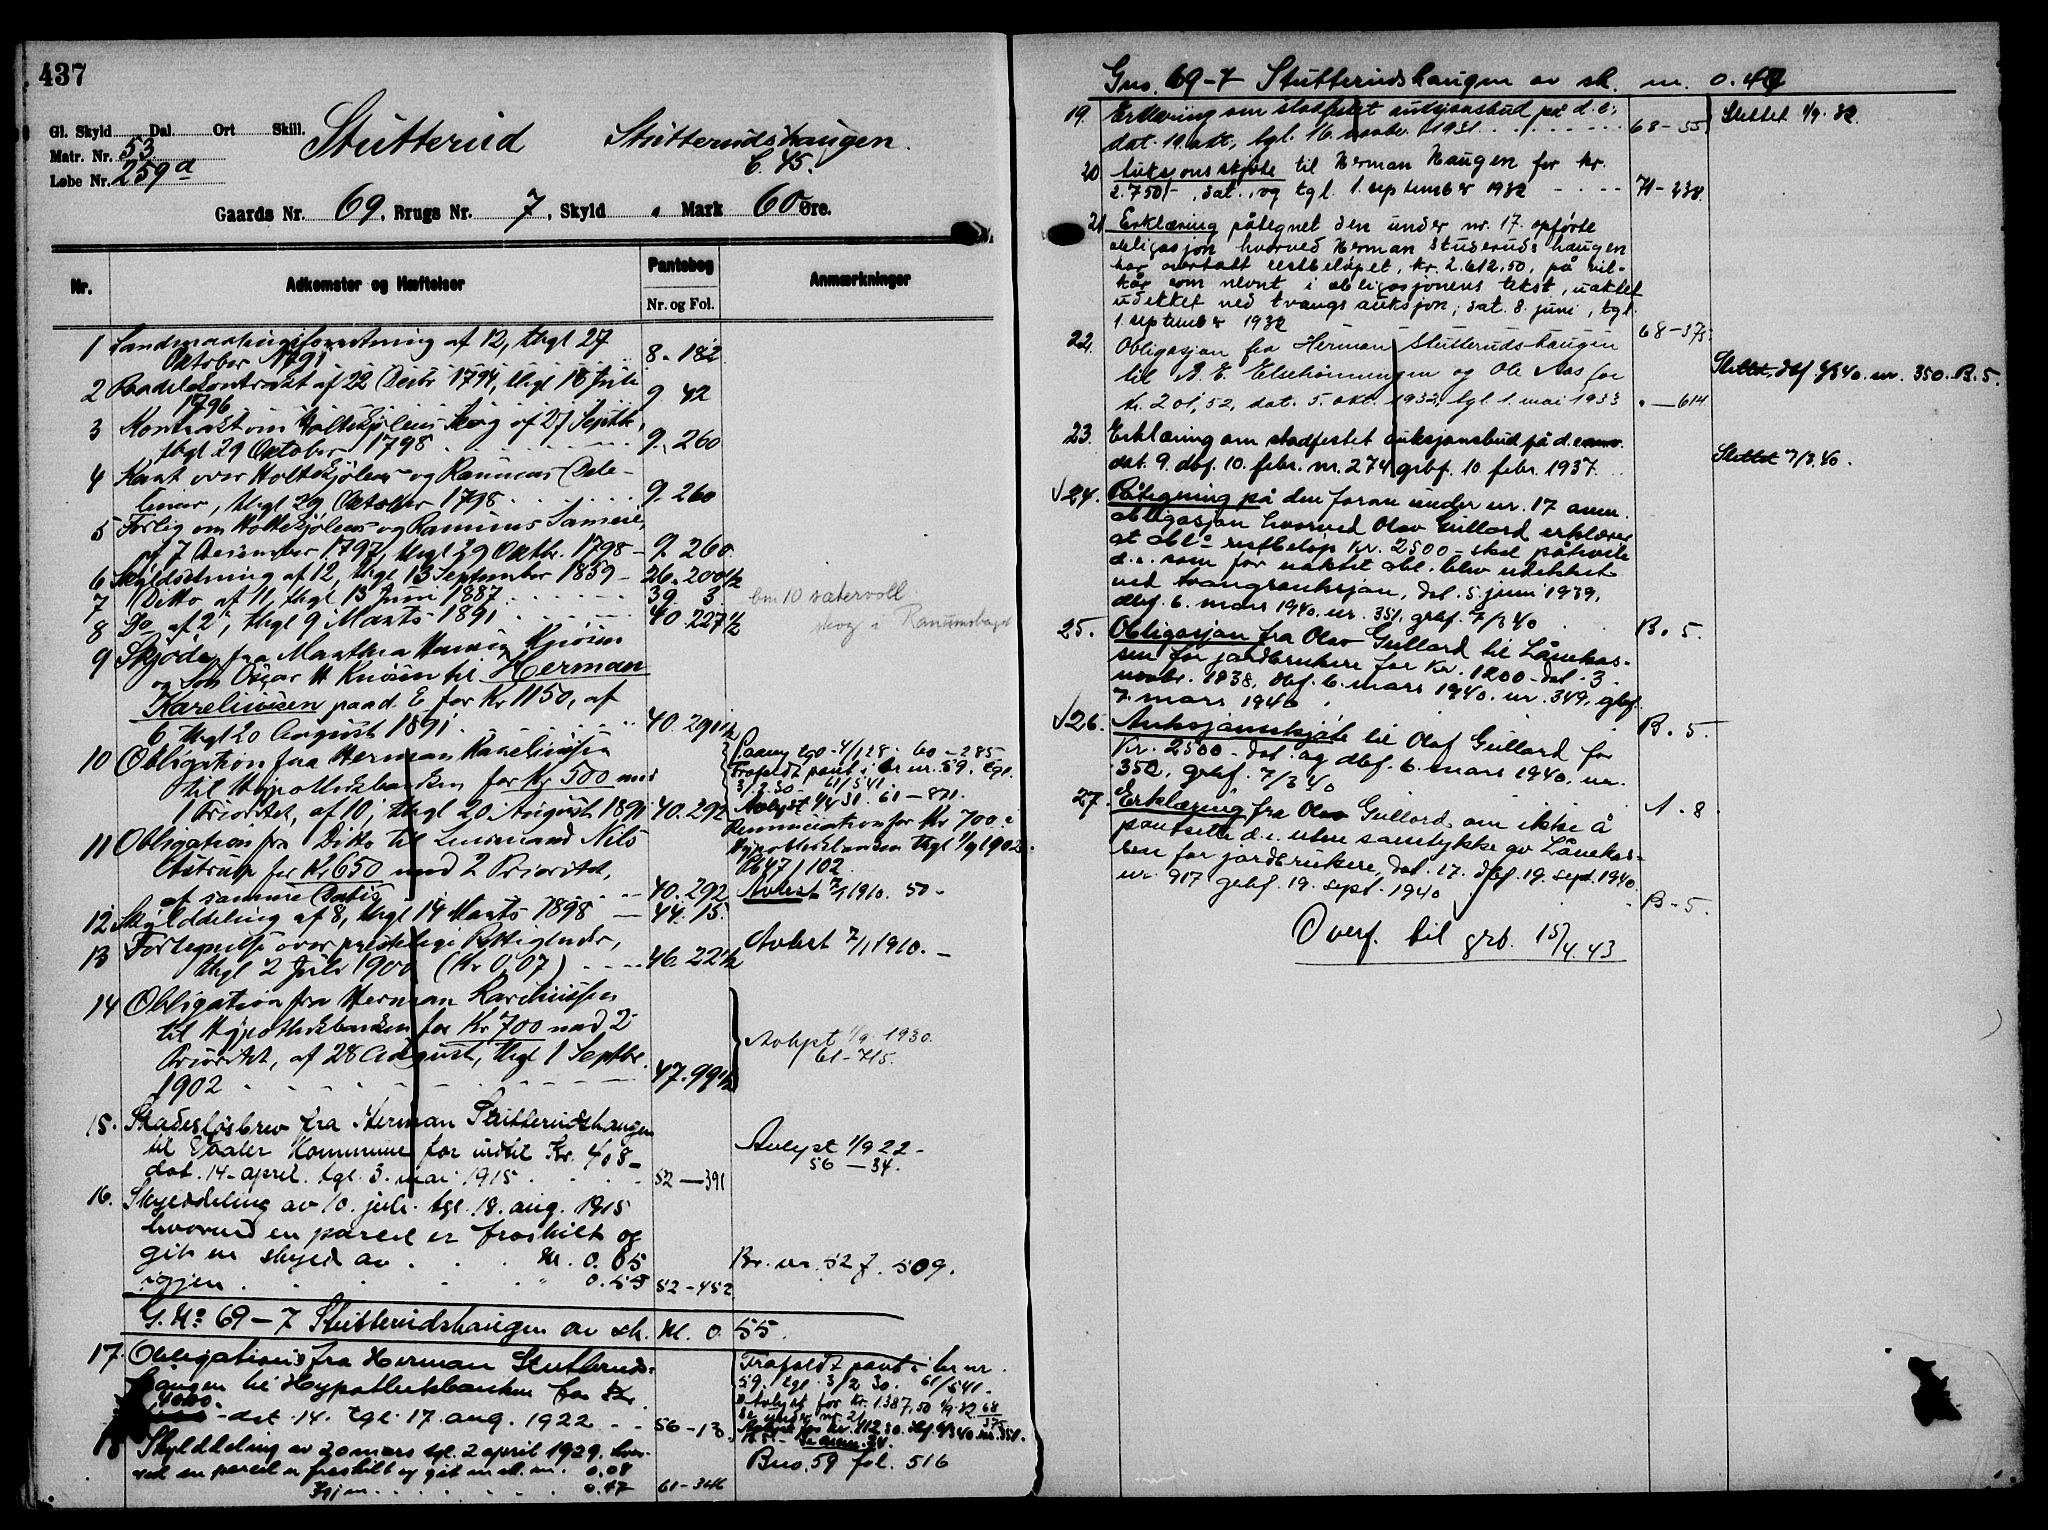 437
Gl. Skyld Dal. Ort Skill.
Matr. Nr. 53
Løbe Nr. 259 d
Stutterud Stutterudshaugen
Gaards Nr. 69, Brugs Nr. 7, Skyld Mark 60 Øre.
Nr. Adkomster og Hæftelser Pantebog Anmærkninger
Nr. og Fol.
1 af 12, thgl 27
Oktober 1791 8. 182
2 af 22 Decbr 1794, thgl 18 Juli
1796 9 42
3 Kontrakt om Holtskjølens Skog af 27 Septbr,
thgl 29 Oktober 1798 9. 260
4 Kart over Holtskjølens og Ranums Dele-
linier, thgl 29 Oktober 1798 9. 260
5 Forlig om Holtskjølens og Ranums Sameie,
af 7 December 1797, thgl 29 Oktbr. 1798 9. 260
6 Skyldsetning af 12, thgl 13 September 1859 26. 200 1/2
7 Ditto af 11, thgl 13 Juni 1887 39 3
bm 10 sætervoll
8 Do af 2, thgl 9 Marts 1891 40 227 1/2
skog i
9 Skjøde fra Marthea
og Søn Oscar H Knøsen til Herman
Karelinisen paa d E for Kr 1150, af
6 thgl 20 August 1891 40. 291 1/2
10 Obligation fra Herman Karelinissen
til Hypothekbanken for Kr 500 mod
1 Prioritet, af 10, thgl 20 August 1891 40. 292
4/1 28 60-285
Frafaldt pant i br nr. 59, tgl.
3/2 30 61/541
Avlyst 1/4 31. 61-871.
11 Obligation fra Ditto til Lensmand Nils
Astrup for Kr 650 mod 2 Prioritet,
af samme Datis 40. 292
Renunciation for Kr 700 i
Hypothekbanken thgl 1/9 1902.
Pb 47/102
Avlest 7/1 1910. 50-
12 Skylddeling af 8, thgl 14 Marts 1898 44. 15.
13 Fortegnelse over prestelige Rettigheder,
thgl 2 Juli 1900 (Kr 0,07) 46. 22 1/2
Avlest 7/1 1910.
14 Obligation fra Herman Karelinissen
til Hypothekbanken for Kr 700 mod 2
Prioritet, af 28 August, thgl 1 Septbr.
1902 47. 99 1/2
Avlyst 1/9 1930.
61-715.
15. Skadesløsbrev fra Herman Stutterudshaugen
til Vaaler Kommune for indtil Kr. 408-
dat. 14. april, tgl. 3. mai 1915 52-391
Avlyst 1/9 22-
56-34.
16. Skylddeling av 10. juli. tgl. 18. aug. 1915
hvorved en parcel er fraskilt og
git en skyld av M. 0.05
igjen 0.55 52-452
Br. nr. 52 f. 509.
G.No 69-7 Stutterudshaugen av sk. M. 0.55.
17. Obligation fra Herman Stutteruds-
haugen til Hypothekbanken for Kr
4000.
dat. 14. tgl. 17. aug. 1922 56-13.
Frafaldt pant i br. nr.
59. tgl. 3/2 30. 61/541-
Avlyst for Kr. 1387,50 1/9 32 68
Se under nr. 21 375
18 Skylddeling av 20 mars tgl. 2 april 1929, hvor-
ved en parcel er fraskilt og git en sk. m. 0.08
Igjen 0.47 61-346
Bno. 59 fol. 516
Gno. 69-7 Stutterudshaugen av sk. m. 0.47
19. Erklæring om stadfestet auksjonsbud på d.e.,
dat. 19. okt., tgl. 16. novbr. 1931 68-55
Slettet 1/9. 32.
20 Auksjonsskjøte til Herman Haugen for kr.
2.750,-, dat., og tgl. 1. september 1932 71-238.
21 Erklæring påtegnet den under nr. 17. opførte
obligasjon hvorved Herman Studerudshaugen
har overtatt restbeløpet, kr. 2.612,50, på vil-
kår som nevnt i obligasjonens tekst, uaktet
udekket ved tvangsauksjon; dat. 8. juni, tgl.
1. september 1932 68-375.
22. Obligasjon fra Herman Stutterudshaugen
til A. E. og Ole Aas for
kr. 201,52, dat. 5. okt. 1932, tgl. 1. mai 1933 "-614
Slettet dbf. 6/3 40. nr. 350. B. 5.
23. Erklæring om stadfestet auksjonsbud på d. e.
dat. 9. dbf. 10. febr. nr. 274 grbf. 10. febr. 1937.
Slettet 7/3.40.
√24. Påtegning på den foran under nr. 17 anm.
obligasjon hvorved Olav Gullord erklærer
at obl.s restbeløp kr. 2500- skal påhvile
d.e. som før uaktet obl. blev udekket
ved tvangsauksjon, dat. 5. juni 1939,
dbf. 6. mars 1940. nr. 351, grbf. 7/3 40 B. 5.
25. Obligasjon fra Olav Gullord til Lånekas-
sen for jordbrukere for Kr. 1200- dat. 3.
novbr. 1938, dbf. 6. mars 1940. nr. 349, grbf.
7. mars 1940 B. 5.
√26. Auksjonsskjøte til Olaf Gullord for
Kr. 2500- dat. og dbf. 6. mars 1940. nr.
350, grbf. 7/3 40 A. 8
27. Erklæring fra Olav Gullord om ikke å
pantsette d.e. uten samtykke av Lånekas-
sen for jordbrukere, dat. 17. dbf. 19. sept. 1940.
nr. 917 grbf. 19. sept. 1940 B-5.
Overf. til grb. 15/4.43